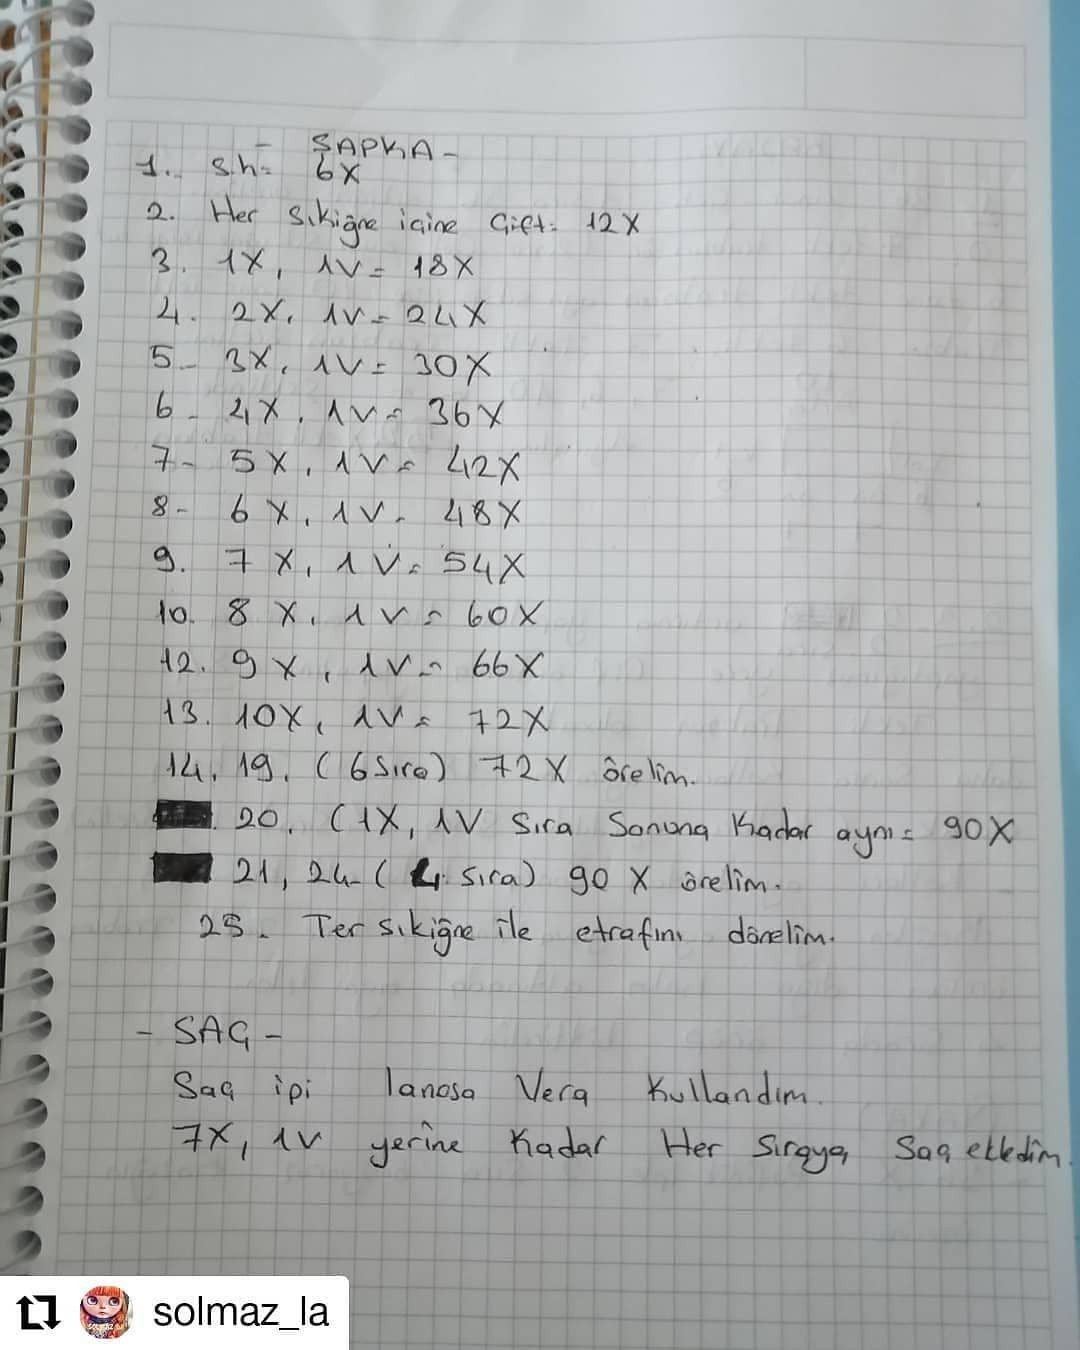 - ŞAPKA -
1. s.h= 6X
2. Her sıkiğne içine Çift= 12X
3. 1X, 1V= 18X
4. 2X, 1V= 24X
5- 3X, 1V= 30X
6- 4X, 1V= 36X
7- 5X, 1V= 42X
8- 6X, 1V= 48X
9. 7X, 1V= 54X
10. 8X, 1V= 60X
12. 9X, 1V= 66X
13. 10X, 1V= 72X
14, 19. (6 sıra) 72X örelim.
20. (1X, 1V sıra Sonuna Kadar aynı= 90X
21, 24- (4 sıra) 90 X örelim.
25. Ters sıkiğne ile etrafını dönelim.
- SAÇ -
Saç ipi lanosa Vera Kullandım.
7X, 1V yerine Kadar Her Sıraya Saç ekledim.
solmaz_la